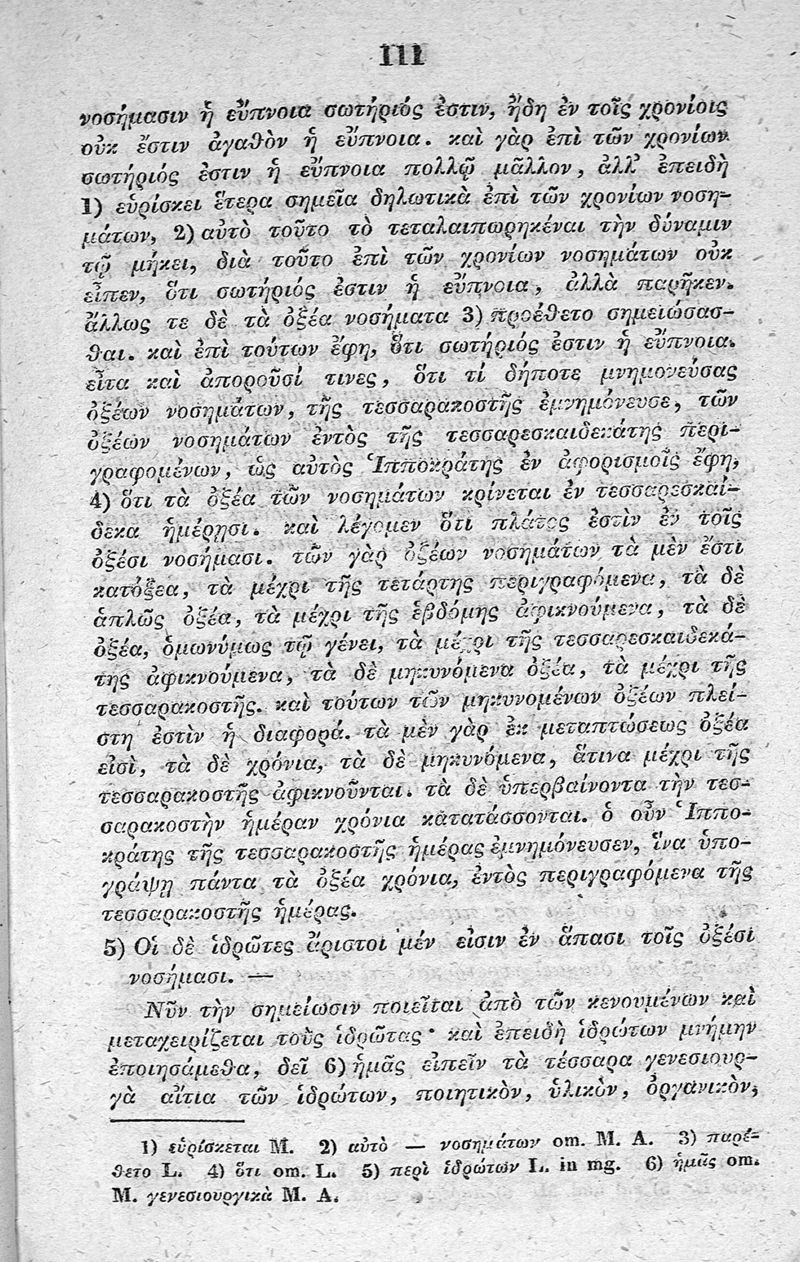 111
νοσήμασιν ἡ εὔπνοια σωτήριός ἐστιν, ἤδη ἐν τοῖς χρονίοις
οὐκ ἔστιν ἀγαθὸν ἡ εὔπνοια. καὶ γὰρ ἐπὶ τῶν χρονίων
σωτήριός ἐστιν ἡ εὔπνοια πολλῷ μᾶλλον, ἀλλ' ἐπειδὴ
1) εὑρίσκει ἕτερα σημεῖα δηλωτικὰ ἐπὶ τῶν χρονίων νοση-
μάτων, 2) αὐτὸ τοῦτο τὸ τεταλαιπωρηκέναι τὴν δύναμιν
τῷ μήκει, διὰ τοῦτο ἐπὶ τῶν χρονίων νοσημάτων οὐκ
εἶπεν, ὅτι σωτήριός ἐστιν ἡ εὔπνοια, ἀλλὰ παρῆκεν.
ἄλλως τε δὲ τὰ ὀξέα νοσήματα 3) προέθετο σημειώσασ-
θαι. καὶ ἐπὶ τούτων ἔφη, ὅτι σωτήριός ἐστιν ἡ εὔπνοια.
εἶτα καὶ ἀποροῦσί τινες, ὅτι τί δήποτε μνημονεύσας
ὀξέων νοσημάτων, τῆς τεσσαρακοστῆς ἐμνημόνευσε, τῶν
ὀξέων νοσημάτων ἐντὸς τῆς τεσσαρεσκαιδεκάτης περι-
γραφομένων, ὡς αὐτὸς Ἱπποκράτης ἐν ἀφορισμοῖς ἔφη,
4) ὅτι τὰ ὀξέα τῶν νοσημάτων κρίνεται ἐν τεσσαρεσκαί-
δεκα ἡμέρῃσι. καὶ λέγομεν ὅτι πλάτος ἐστὶν ἐν τοῖς
ὀξέσι νοσήμασι. τῶν γὰρ ὀξέων νοσημάτων τὰ μὲν ἔστι
κατόξεα, τὰ μέχρι τῆς τετάρτης περιγραφόμενα, τὰ δὲ
ἁπλῶς ὀξέα, τὰ μέχρι τῆς ἑβδόμης ἀφικνούμενα, τὰ δὲ
ὀξέα, ὁμωνύμως τῷ γένει, τὰ μέχρι τῆς τεσσαρεσκαιδεκά-
της ἀφικνούμενα, τὰ δὲ μηκυνόμενα ὀξέα, τὰ μέχρι τῆς
τεσσαρακοστῆς. καὶ τούτων τῶν μηκυνομένων ὀξέων πλεί-
στη ἐστὶν ἡ διαφορά. τὰ μὲν γὰρ ἐκ μεταπτώσεως ὀξέα
εἰσὶ, τὰ δὲ χρόνια, τὰ δὲ μηκυνόμενα, ἅτινα μέχρι τῆς
τεσσαρακοστῆς ἀφικνοῦνται. τὰ δὲ ὑπερβαίνοντα τὴν τεσ-
σαρακοστὴν ἡμέραν χρόνια κατατάσσονται. ὁ οὖν Ἱππο-
κράτης τῆς τεσσαρακοστῆς ἡμέρας ἐμνημόνευσεν, ἵνα ὑπο-
γράψῃ πάντα τὰ ὀξέα χρόνια, ἐντὸς περιγραφόμενα τῆς
τεσσαρακοστῆς ἡμέρας.
5) Οἱ δὲ ἱδρῶτες ἄριστοι μέν εἰσιν ἐν ἅπασι τοῖς ὀξέσι
νοσήμασι. —
Νῦν τὴν σημείωσιν ποιεῖται ἀπὸ τῶν κενουμένων καὶ
μεταχειρίζεται τοὺς ἱδρῶτας· καὶ ἐπειδὴ ἱδρώτων μνήμην
ἐποιησάμεθα, δεῖ 6) ἡμᾶς εἰπεῖν τὰ τέσσαρα γενεσιουρ-
γὰ αἴτια τῶν ἱδρώτων, ποιητικὸν, ὑλικὸν, ὀργανικὸν,
1) εὑρίσκεται M. 2) αὐτὸ — νοσημάτων om. M. A. 3) παρέ-
θετο L. 4) ὅτι om. L. 5) περὶ ἱδρώτων L. in mg. 6) ἡμᾶς om.
M. γενεσιουργικὰ M. A.